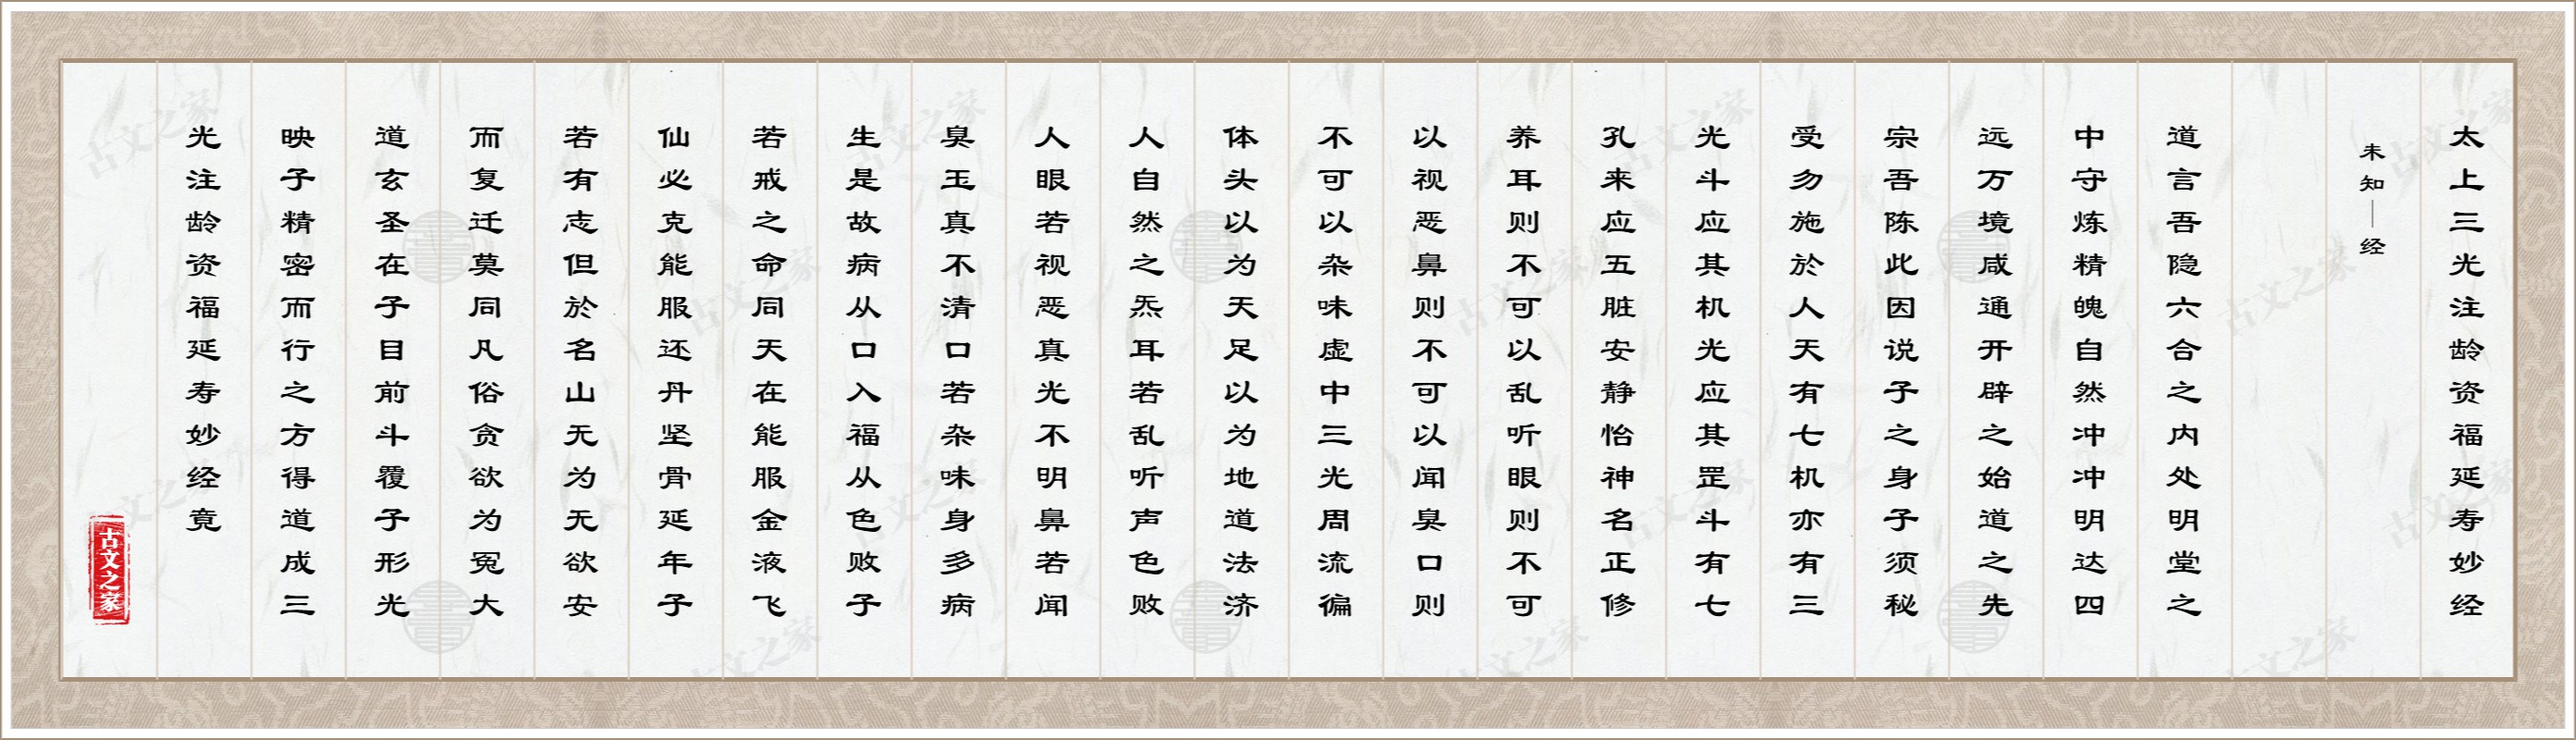 太上三光注龄资福延寿妙经
未知｜经
道言吾隐六合之内处明堂之
中守炼精魄自然冲冲明达四
远万境咸通开辟之始道之先
宗吾陈此因说子之身子须秘
受勿施於人天有七机亦有三
光斗应其机光应其罡斗有七
孔来应五脏安静怡神名正修
养耳则不可以乱听眼则不可
以视恶鼻则不可以闻臭口则
不可以杂味虚中三光周流徧
体头以为天足以为地道法济
人自然之炁耳若乱听声色败
人眼若视恶真光不明鼻若闻
臭玉真不清口若杂味身多病
生是故病从口入福从色败子
若戒之命同天在能服金液飞
仙必克能服还丹坚骨延年子
若有志但於名山无为无欲安
而复迁莫同凡俗贪欲为冤大
道玄圣在子目前斗覆子形光
映子精密而行之方得道成三
光注龄资福延寿妙经竟
古文之家